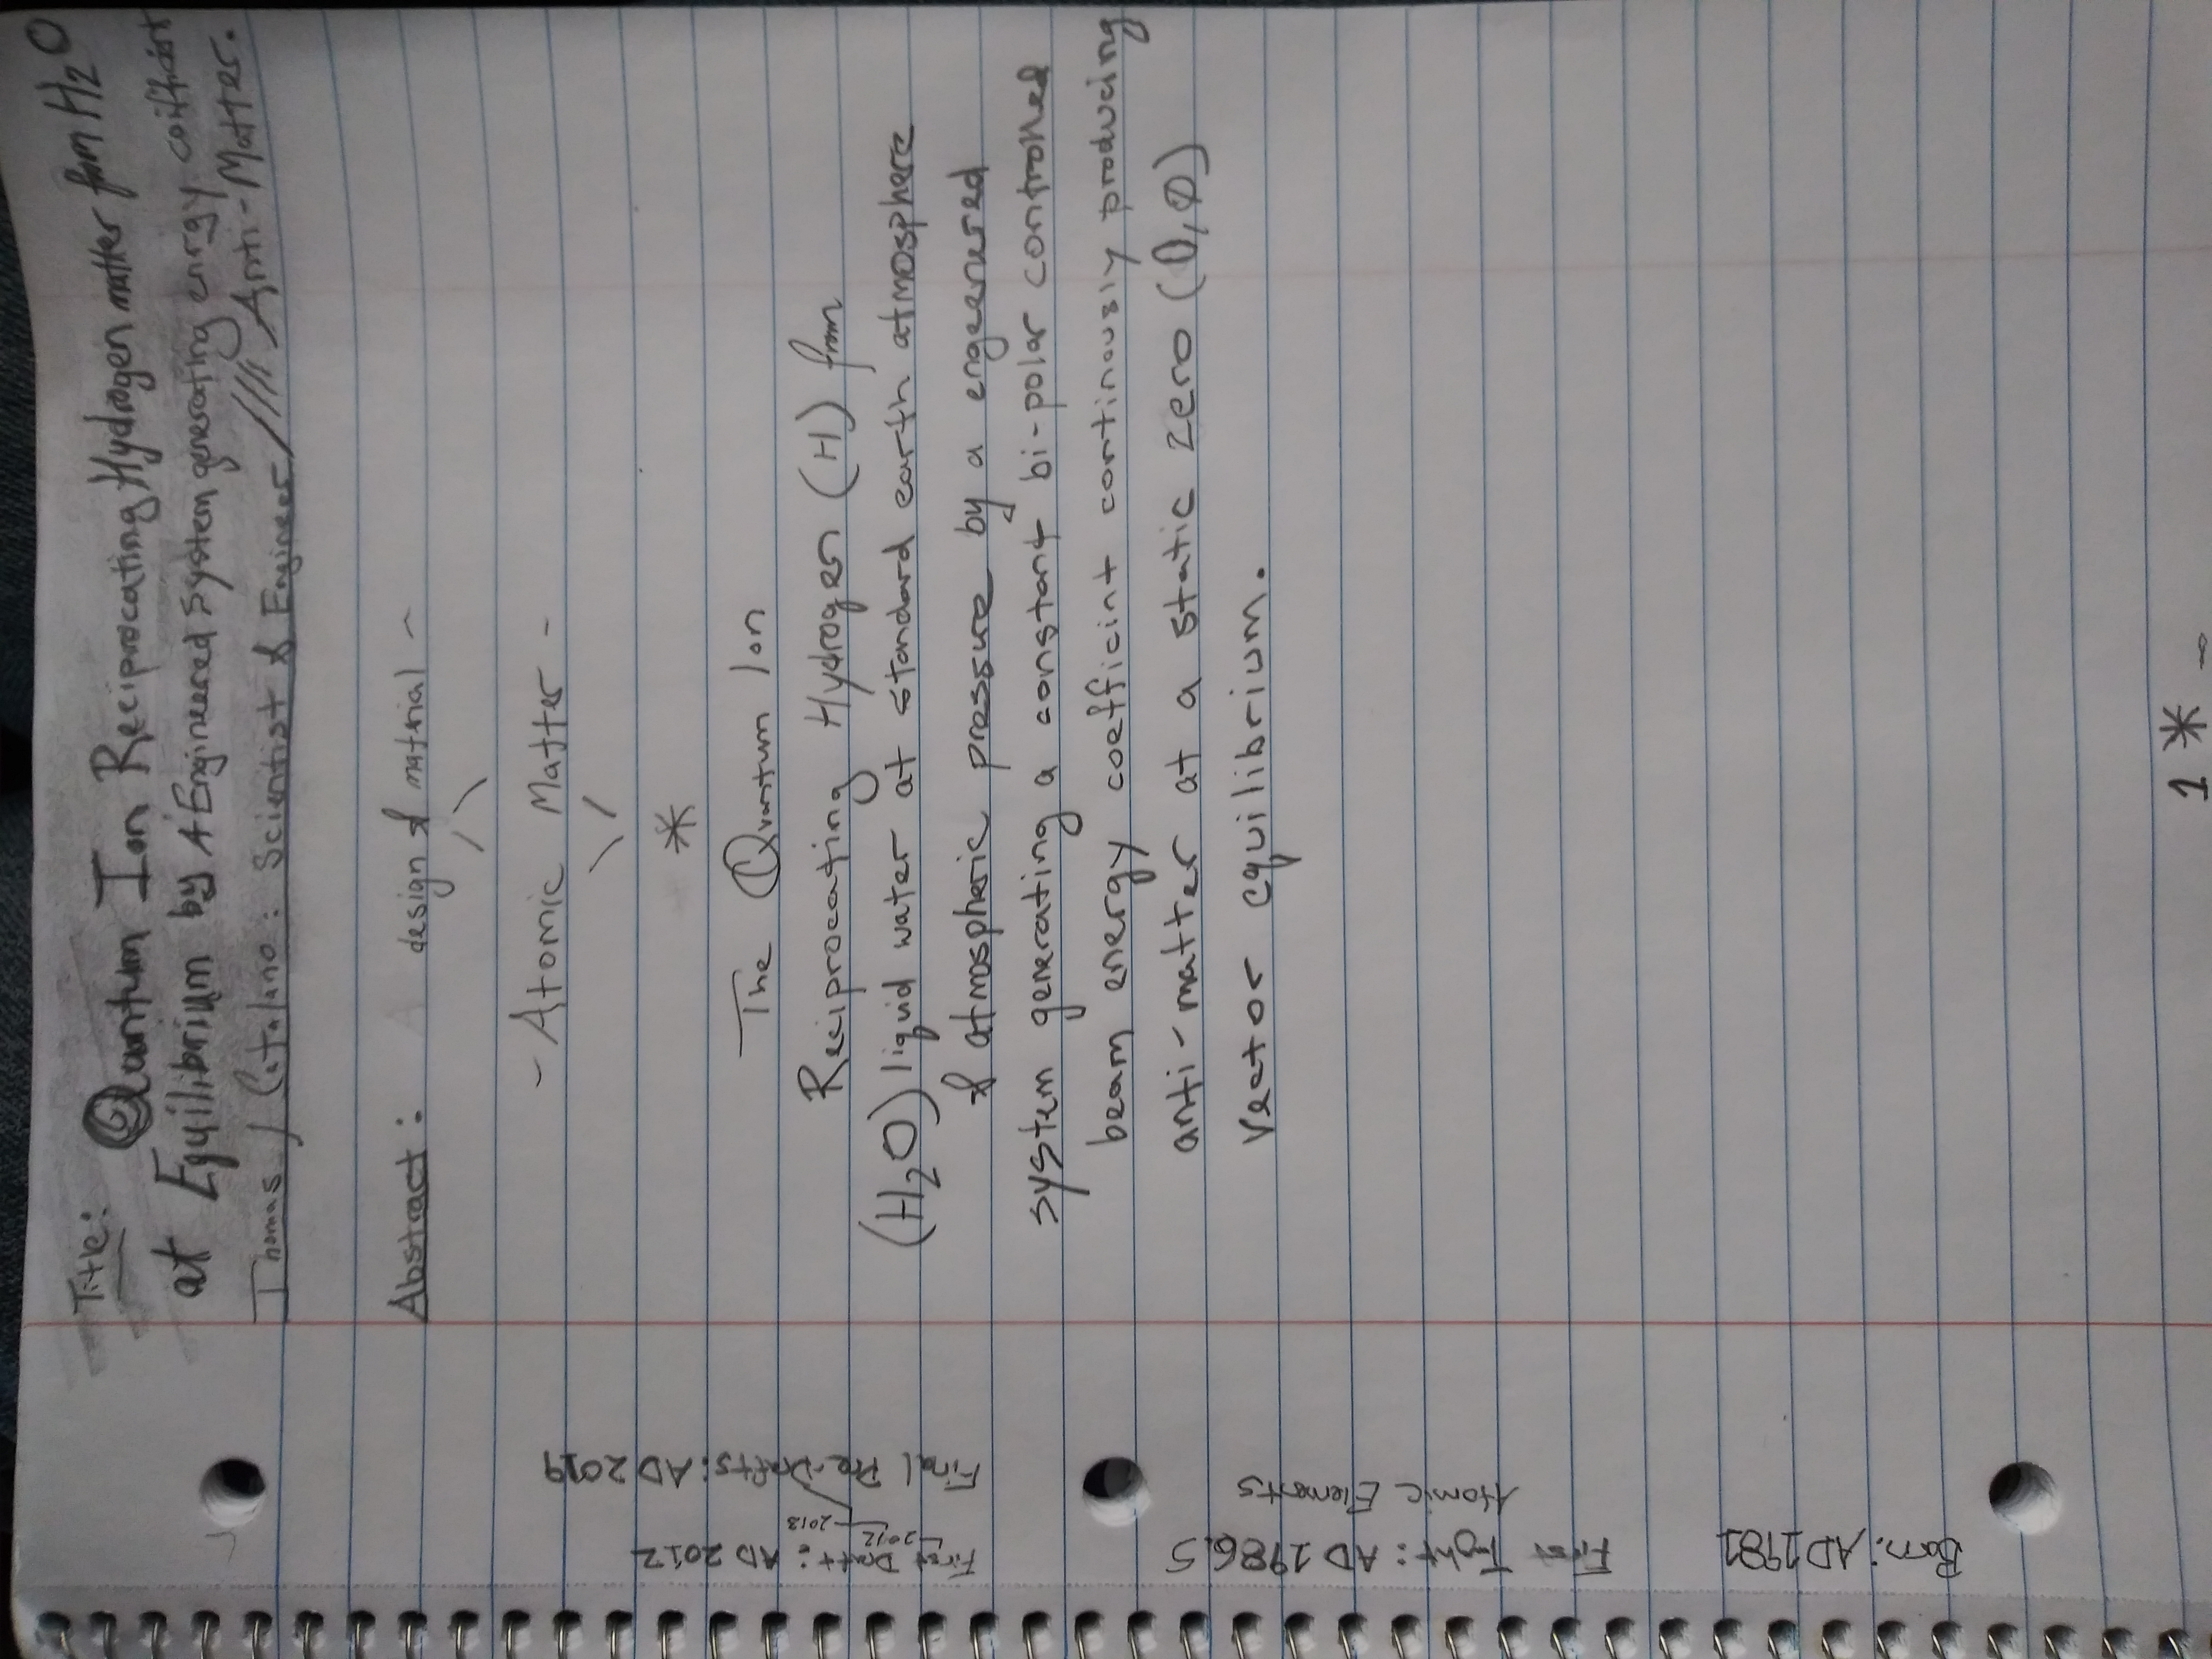 Title: Quantum Ion Reciprocating Hydrogen matter from H2O
at Equilibrium by A Engineered System generating enrgy coifficint
Thomas J Catalano: Scientist & Engineer //// Anti-Matter.
Abstract: design & material ~
/ \
- Atomic Matter -
\ /
*
The Quantum Ion
Reciprocating Hydrogen (H) from
(H2O) liquid water at standard earth atmosphere
& atmospheric pressure by a engeenered
system generating a constant bi-polar controlled
beam energy coefficint continously producing
anti-matter at a static zero (0,Ø)
vector equilibrium.
First Draft: AD 2012
2012-2013
Final Pre-Drafts: AD 2019
First Tught: AD 1986.5
Atomic Elements
Born: AD 1981
1 *